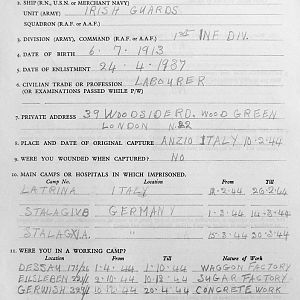 2. SHIP (R.N., U.S.N. or MERCHANT NAVY)
UNIT (ARMY) IRISH GUARDS
SQUADRON (R.A.F. or A.A.F.)
3. DIVISION (ARMY), COMMAND (R.A.F. or A.A.F.) 1ST INF DIV.
4. DATE OF BIRTH 6. 7. 1913
5. DATE OF ENLISTMENT 24. 4. 1937
6. CIVILIAN TRADE OR PROFESSION LABOURER
(OR EXAMINATIONS PASSED WHILE P/W)
7. PRIVATE ADDRESS 39 WOODSIDE RD. WOOD GREEN
LONDON N.22
8. PLACE AND DATE OF ORIGINAL CAPTURE ANZIO ITALY 10-2-44
9. WERE YOU WOUNDED WHEN CAPTURED? NO
10. MAIN CAMPS OR HOSPITALS IN WHICH IMPRISONED.
Camp No. Location From Till
LATRINA ITALY 2-44 26-2-44
STALAG IVB GERMANY 1-3-44 14-3-44
STALAG XIA " 15-3-44 30-3-44
11. WERE YOU IN A WORKING CAMP?
Location From Till Nature of Work
DESSAU 1-4-44 1-10-44 WAGGON FACTORY
EILSLEBEN SUGAR FACTORY
GERWISH 20-4-44 CONCRETE WORK